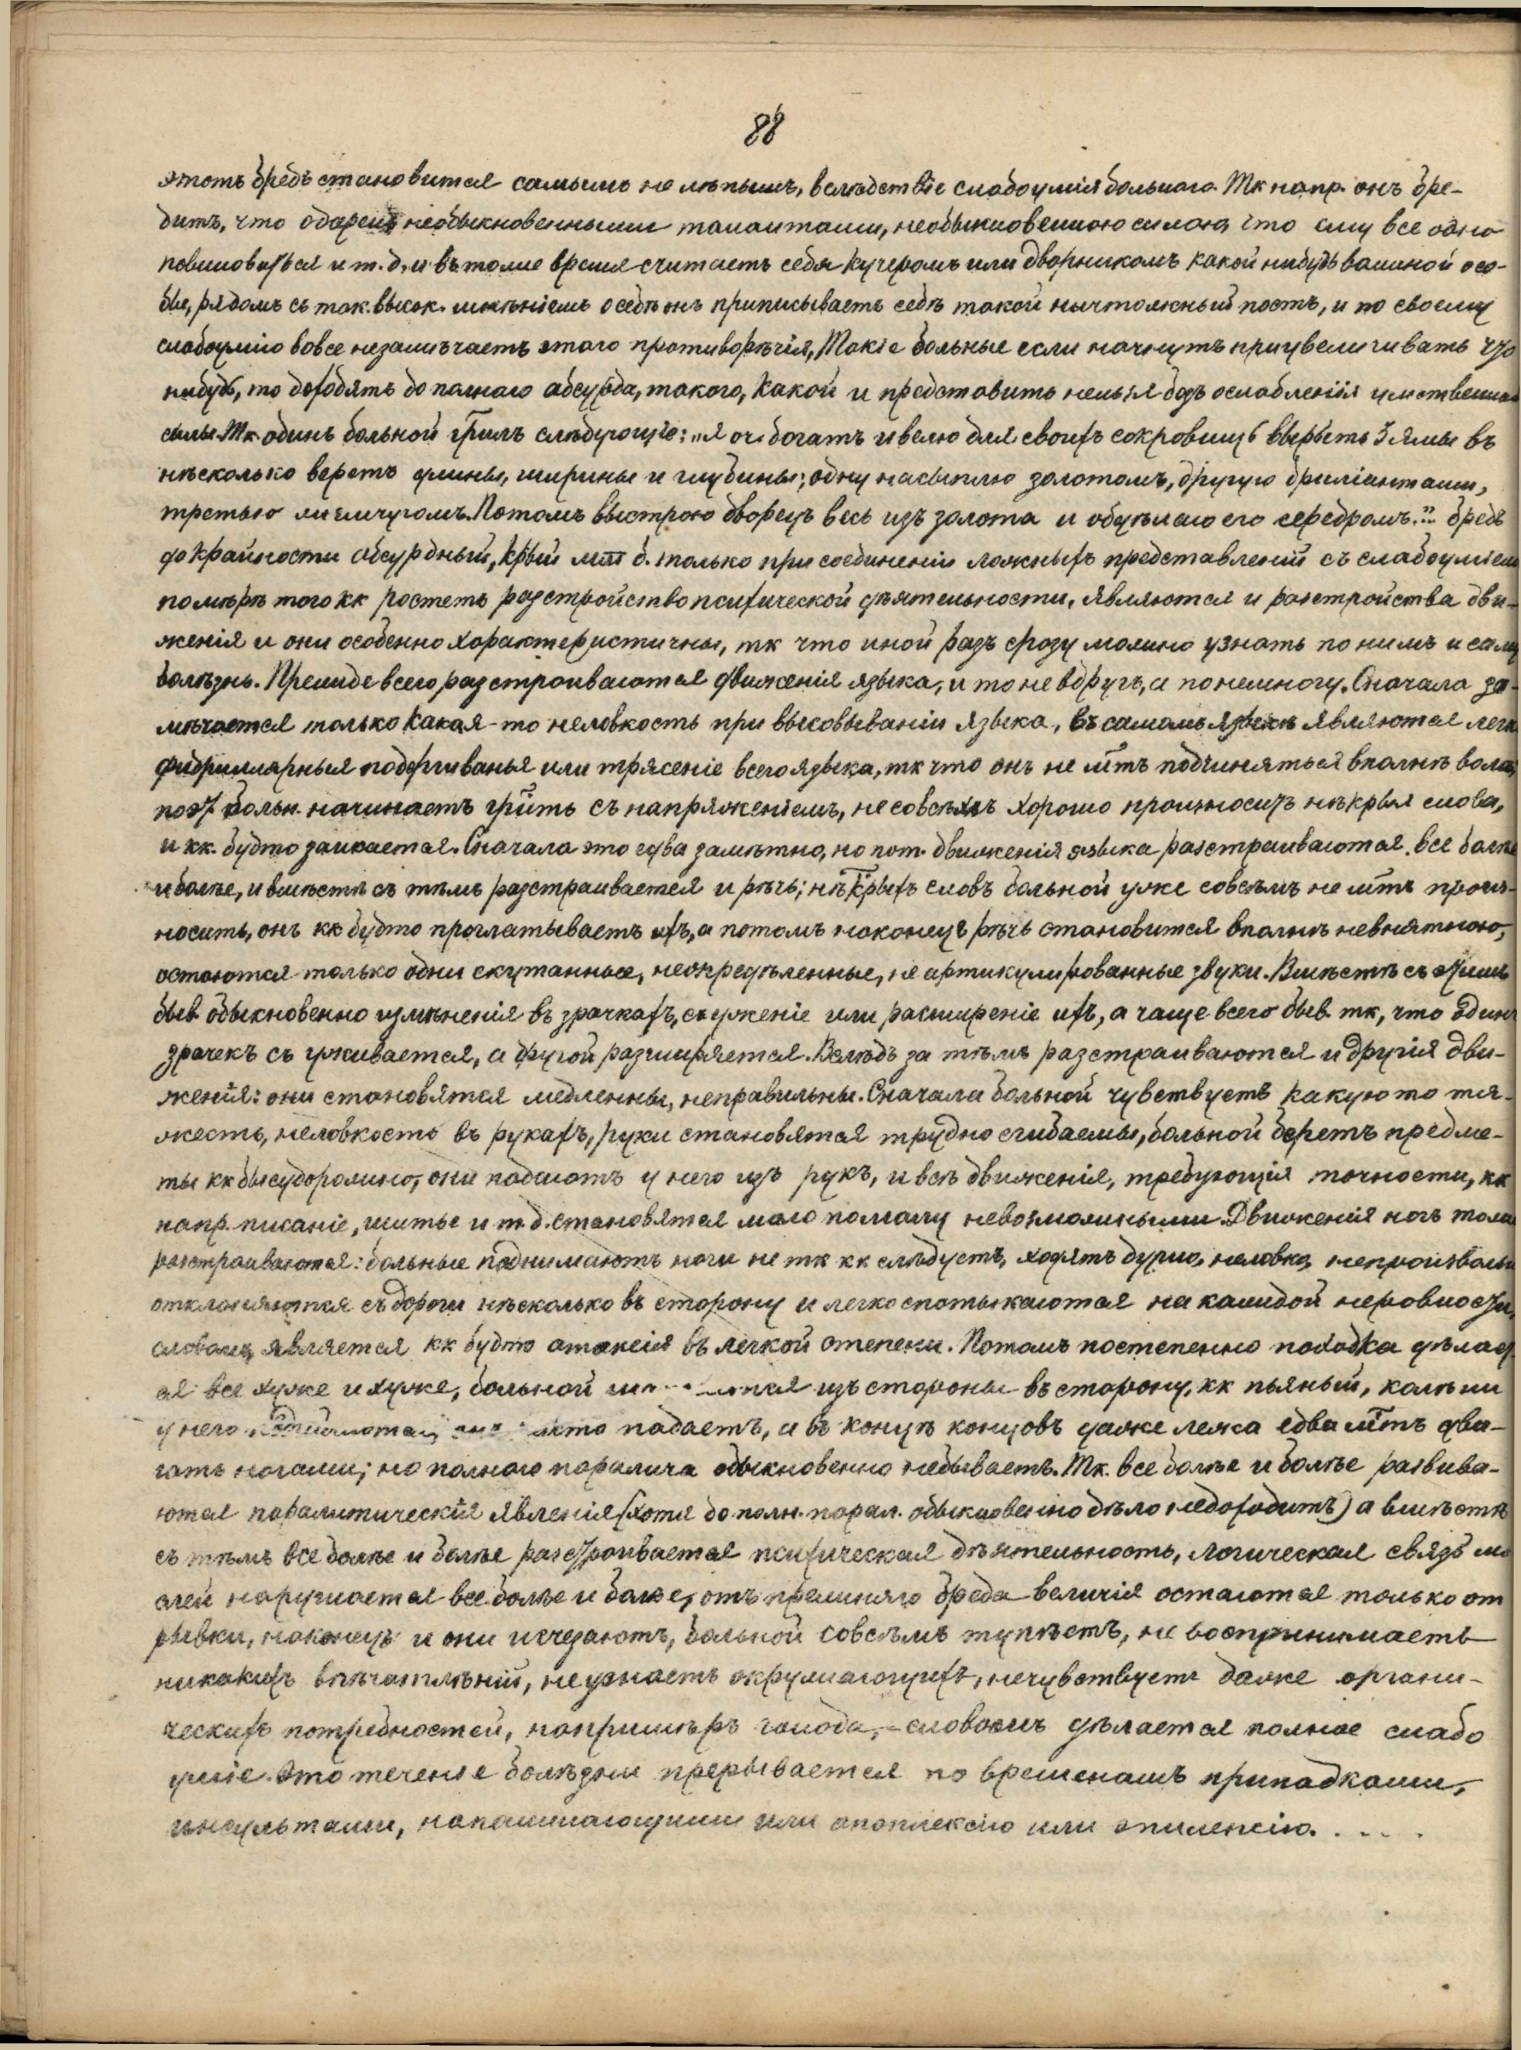 88
этотъ бредъ становится самымъ нелѣпымъ, вслѣдствіе слабоумія больнаго. Тк напр. онъ бре-
дитъ, что одаренъ необыкновенными талантами, необыкновенною силою, что ему все одно
повиноваться и т. д. и въ тоже время считаетъ себя кучеромъ или дворникомъ какой нибудь важной осо-
бы, рядомъ съ так. высок. мнѣніемъ о себѣ онъ приписываетъ себѣ такой ничтожный постъ, и по своему
слабоумію вовсе незамѣчаетъ этаго противорѣчія, Такіе больные если начнутъ приувеличивать что
нибудь, то доходятъ до полнаго абсурда, такого, какой и представить нельзя безъ ослабленія умственной
силы. Тк одинъ больной грилъ слѣдующіе: „я оч. богатъ и велю для своихъ сокровищъ вырыть 3 ямы въ
нѣсколько верстъ длины, ширины и глубины; одну насыплю золотомъ, другую бриліантами,
третью жемчугомъ. Потомъ выстрою дворецъ весь изъ золота и обдѣлаю его серебромъ." бредъ
до крайности абсурдный, крый мтъ б. только при соединеніи ложныхъ представленій съ слабоуміемъ
по мѣрѣ того кк ростетъ разстройство психической дѣятельности, являются и разстройства дви-
женія и они особенно характеристичны, тк что иной разъ сразу можно узнать по нимъ и саму
болѣзнь. Прежде всего разстроиваются движенія языка, и то не вдругъ, а понемногу. Сначала за-
мѣчается только какая-то неловкость при высовываніи языка, въ самомъ языкѣ являются легк
фибриллярныя подергиванья или трясеніе всего языка, тк что онъ не мтъ подчиняться вполнѣ волѣ,
поэт больн. начинаетъ грить съ напряженіемъ, не совсѣмъ хорошо произноситъ нѣкрыя слова,
и кк. будто заикается. Сначала это едва замѣтно, но пот. движенія языка разстраиваются все болѣе
и болѣе, и вмѣстѣ съ тѣмъ разстраивается и рѣчь; нѣкрыхъ словъ больной уже совсѣмъ не мтъ произ-
носить, онъ кк будто проглатываетъ ихъ, а потомъ наконецъ рѣчь становится вполнѣ невнятною,
остаются только одни спутанные, неопредѣленные, не артикулированные звуки. Вмѣстѣ съ этимъ
быв. обыкновенно измѣненія въ зрачкахъ, съуженіе или расширеніе ихъ, а чаще всего быв. тк, что одинъ
зрачекъ съуживается, а другой разширяется. Вслѣдъ за тѣмъ разстраиваются и другія дви-
женія: они становятся медленны, неправильны. Сначала больной чувствуетъ какую то тя-
жесть, неловкость въ рукахъ, руки становятся трудно сгибаемы, больной беретъ предме-
ты кк бы судорожно, они падаютъ у него изъ рукъ, и всѣ движенія, требующія точности, кк
напр. писаніе, шитье и т. д. становятся мало помалу невозможными. Движенія ногъ тоже
разстраиваются: больные поднимаютъ ноги не тк кк слѣдуетъ, ходятъ дурно, неловко, непроизвольн
отклоняются съ дороги нѣсколько въ сторону и легко спотыкаются на каждой неровности,
словомъ, является кк будто атаксія въ легкой степени. Потомъ постепенно походка дѣлает
ся все хуже и хуже, больной изъ стороны въ сторону, кк пьяный, колѣни
у него падаетъ, и въ концѣ концовъ даже лежа едва мтъ дви-
гать ногами; но полнаго паралича обыкновенно небываетъ. Тк. все болѣе и болѣе развива-
ются паралитическія явленія (хотя до полн. парал. обыкновенно дѣло недоходитъ) а вмѣстѣ
съ тѣмъ все болѣе и болѣе разстраивается психическая дѣятельность, логическая связь мы
слей нарушается все болѣе и болѣе, отъ прежняго бреда величія остаются только от
рывки, наконецъ и они исчезаютъ, больной совсѣмъ тупѣетъ, не воспринимаетъ
никакихъ впѣчатлѣній, неузнаетъ окружающихъ, нечувствуетъ даже органи-
ческихъ потребностей, напримѣръ голода, - словомъ дѣлается полное слабо
уміе. Это теченіе болѣзни прерывается по временамъ припадками,
инсультами, напоминающими или апоплексію или эпилепсію. . . . .